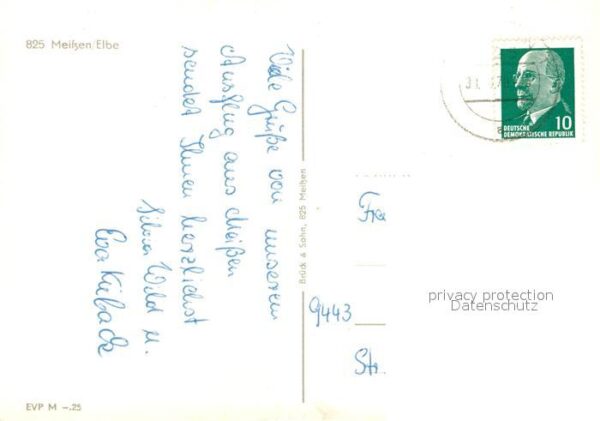 825 Meißen/Elbe
Viele Grüße von unserem
Ausflug aus Meißen
sendet Ihnen herzlichst
Silvia Wild u.
Eva Kuback
EVP M –.25
Brück & Sohn, 825 Meißen
10
DEUTSCHE
DEMOKRATISCHE REPUBLIK
9443
Str.
privacy protection
Datenschutz